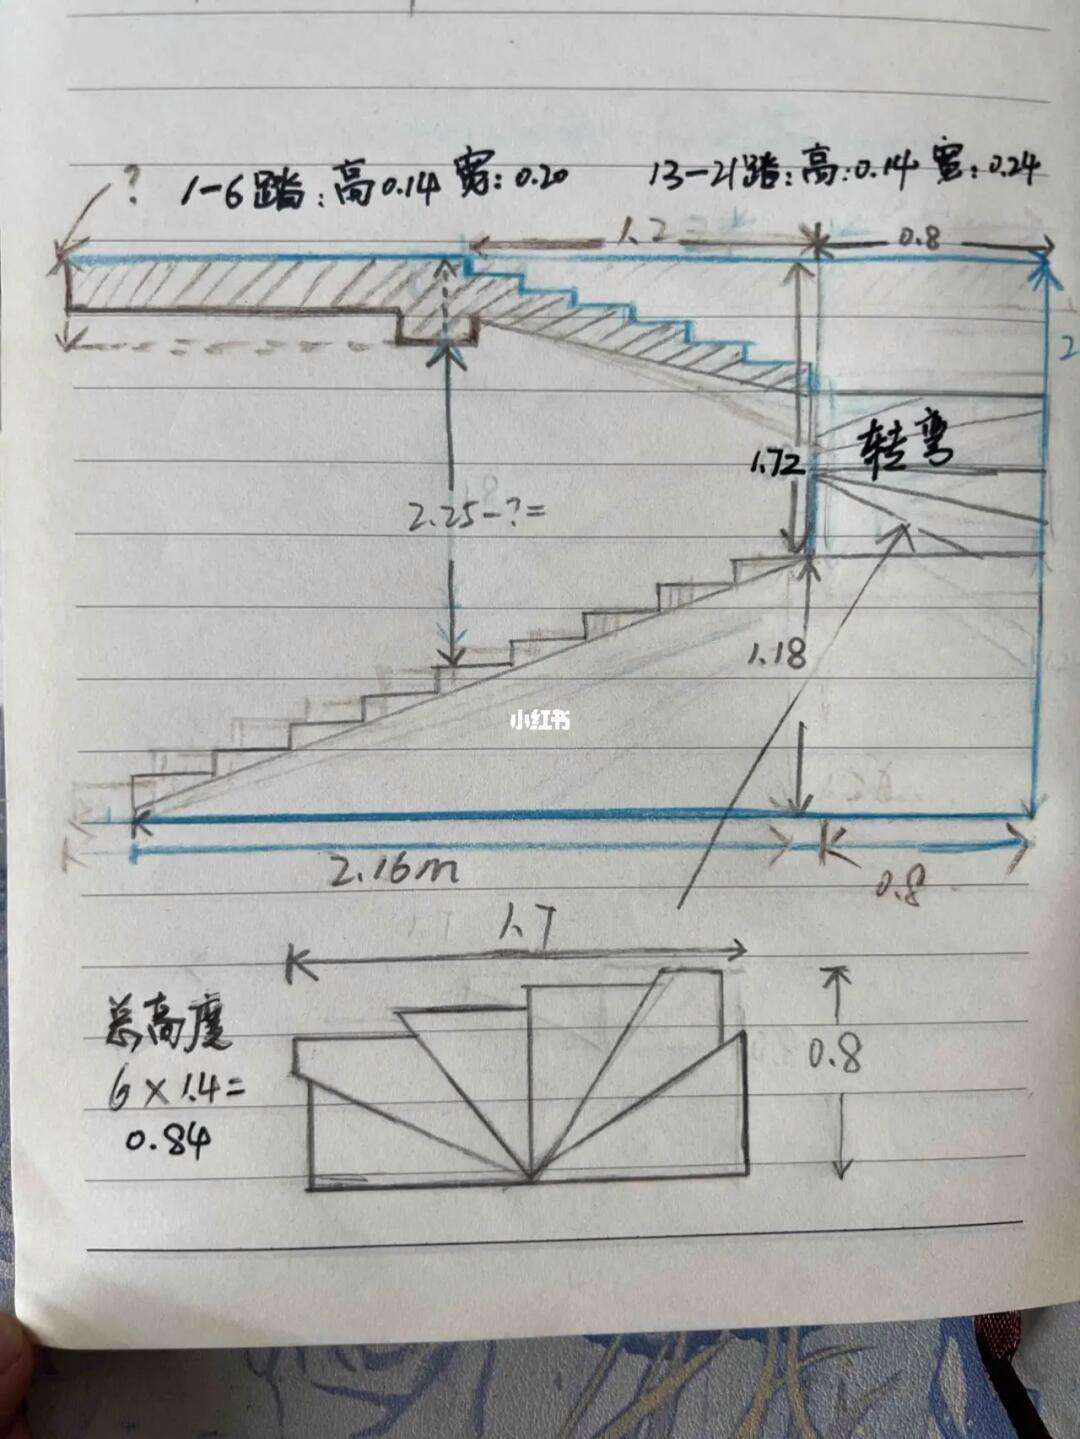 ?
1-6踏:高0.14 宽:0.20
13-21踏:高:0.14 宽:0.24
1.2
0.8
2
1.72
转弯
2.25-?=
1.18
小红书
2.16m
0.8
1.7
总高度
6×1.4=
0.84
0.8